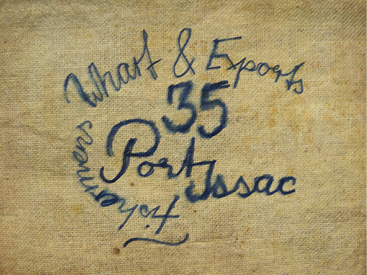 Wharf & Exports
35
Port Issac
fishermans